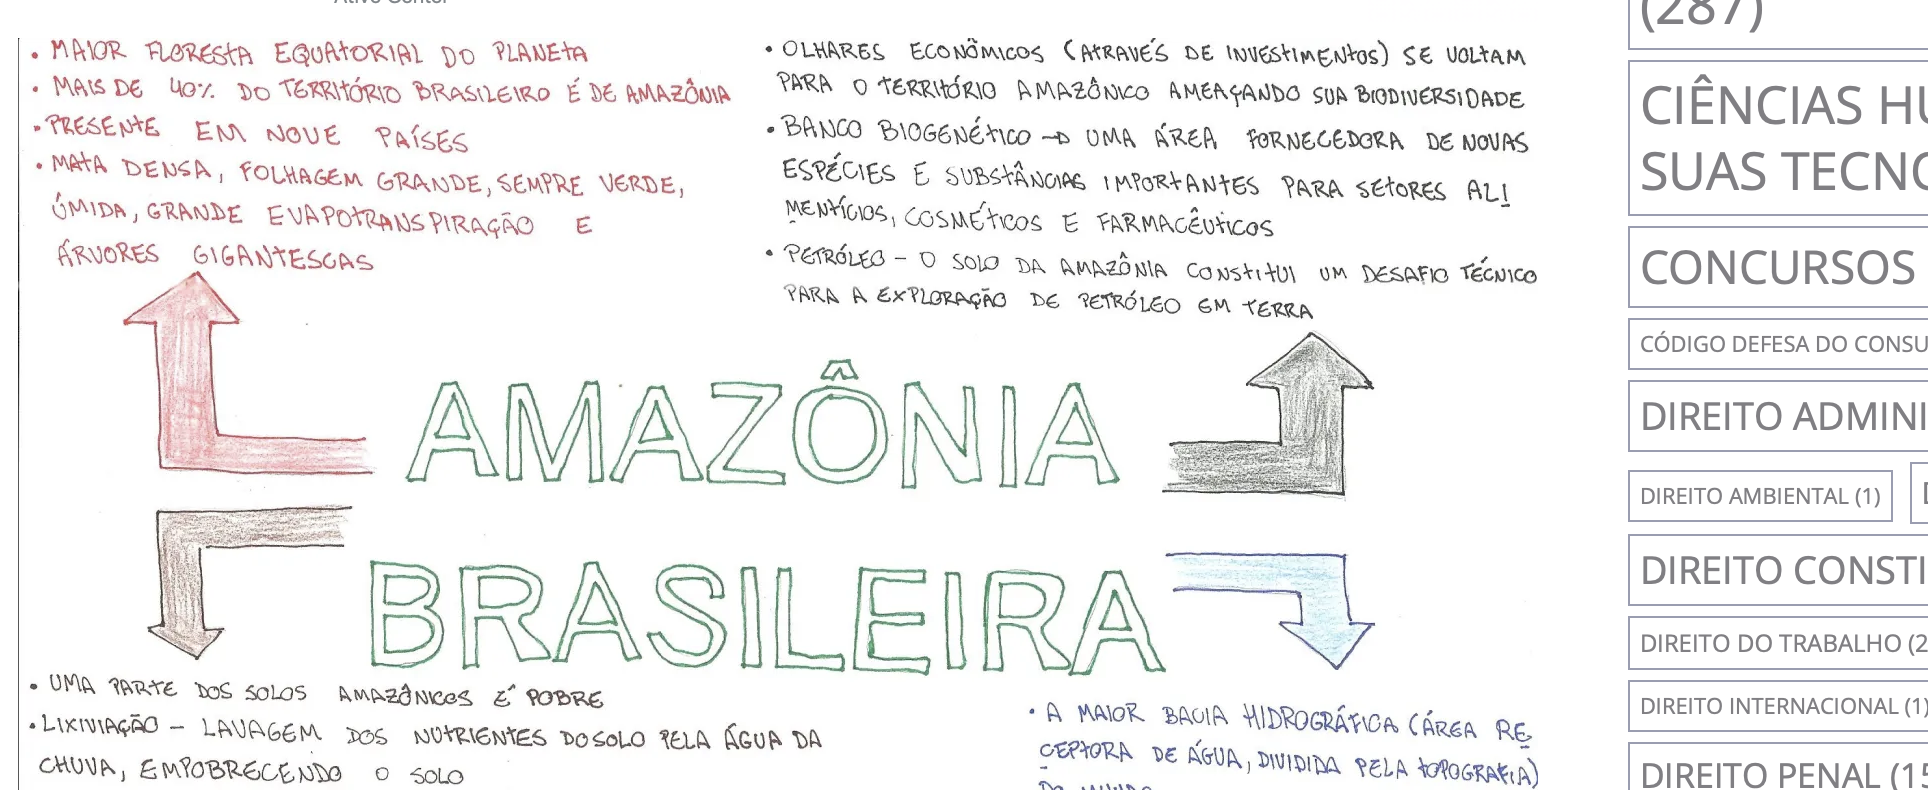 • MAIOR FLORESTA EQUATORIAL DO PLANETA
• MAIS DE 40% DO TERRITÓRIO BRASILEIRO É DE AMAZÔNIA
• PRESENTE EM NOVE PAÍSES
• MATA DENSA, FOLHAGEM GRANDE, SEMPRE VERDE,
ÚMIDA, GRANDE EVAPOTRANSPIRAÇÃO E
ÁRVORES GIGANTESCAS
• OLHARES ECONÔMICOS (ATRAVÉS DE INVESTIMENTOS) SE VOLTAM
PARA O TERRITÓRIO AMAZÔNICO AMEAÇANDO SUA BIODIVERSIDADE
• BANCO BIOGENÉTICO → UMA ÁREA FORNECEDORA DE NOVAS
ESPÉCIES E SUBSTÂNCIAS IMPORTANTES PARA SETORES ALI
MENTÍCIOS, COSMÉTICOS E FARMACÊUTICOS
• PETRÓLEO - O SOLO DA AMAZÔNIA CONSTITUI UM DESAFIO TÉCNICO
PARA A EXPLORAÇÃO DE PETRÓLEO EM TERRA
AMAZÔNIA
BRASILEIRA
• UMA PARTE DOS SOLOS AMAZÔNICOS É POBRE
• LIXIVIAÇÃO - LAVAGEM DOS NUTRIENTES DO SOLO PELA ÁGUA DA
CHUVA, EMPOBRECENDO O SOLO
• A MAIOR BACIA HIDROGRÁFICA (ÁREA RE
CEPTORA DE ÁGUA, DIVIDIDA PELA TOPOGRAFIA)
(287)
CIÊNCIAS HU
SUAS TECNO
CONCURSOS
CÓDIGO DEFESA DO CONSU
DIREITO ADMINI
DIREITO AMBIENTAL (1)
DIREITO CONSTI
DIREITO DO TRABALHO (2
DIREITO INTERNACIONAL (1)
DIREITO PENAL (15